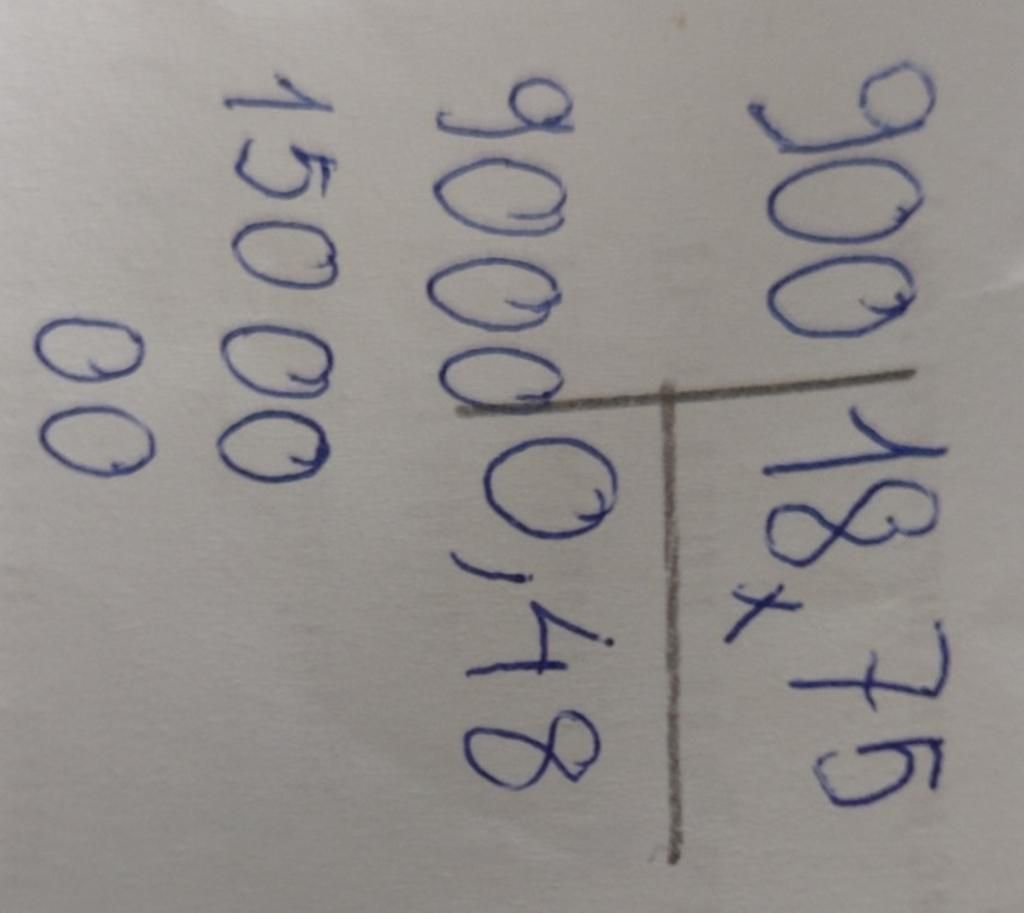 900 18x75
9000 0,48
15000
00